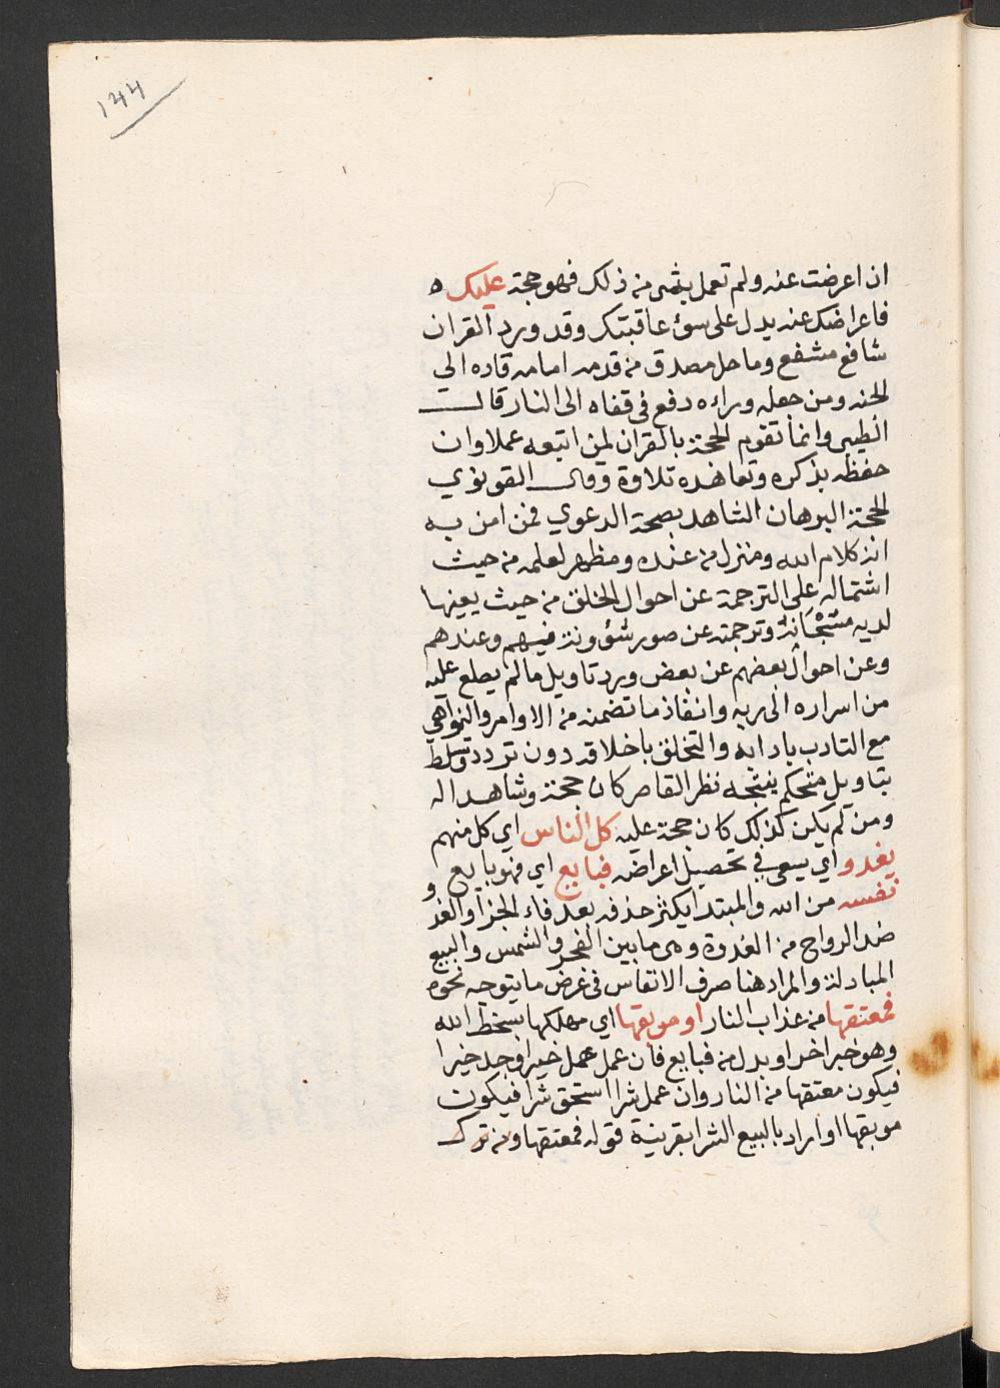 ١٤٤
ان اعرضت عنه ولم تعمل بشى منه ذلك فهو حجة عليك ه
فاعراضك عنه يدل على سوء عاقبتك وقد ورد القران
شافع مشفع وماحل مصدق من قدمه امامه قاده الى
الجنه ومن جعله وراءه دفع في قفاه الى النار قال
الطيبى وانما تقوم الحجة بالقران لمن اتبعه عملا وان
حفظه بذكره وتعاهده تلاوة وقال القونوي
الحجة البرهان الشاهد بصحة الدعوي فمن امن به
انه كلام الله ومنزل من عنده ومظهر لعلمه من حيث
اشتماله على الترجمة عن احوال الخلق من حيث يعينها
لديه وترجمته عن صور شؤونه فيهم وعندهم
وعن احوال بعضهم عن بعض ورد تاويل ما لم يطلع عليه
من اسراره الى ربه وانفاذ ما تضمنه من الاوامر والنواهي
مع التادب بادابه والتخلق باخلاقه دون تردد وتسلط
بتاويل متحكم ينتجه نظر القاصر كان حجة وشاهدا له
ومن لم يكن كذلك كان حجة عليه كل الناس اي كل منهم
يغدو اي يسعى في تحصيل اعراضه فبايع اي فهو بايع و
نفسه من الله والمبتدا يكثر حذفه بعد فاء الجزا والغد
ضد الرواح من الغدوة وهى مابين الفجر والشمس والبيع
المبادلة والمراد هنا صرف الانفاس في غرض ما يتوجه نحوه
فمعتقها من عذاب النار او موبقها اي مهلكها بسخط الله
وهو خبر اخر او بدل من فبايع فان عمل عمل خيرا وجد خيرا
فيكون معتقها من النار وان عمل شرا استحق شرا فيكون
موبقها او اراد بالبيع الشرا بقرينة قوله فمعتقها ومن ترك